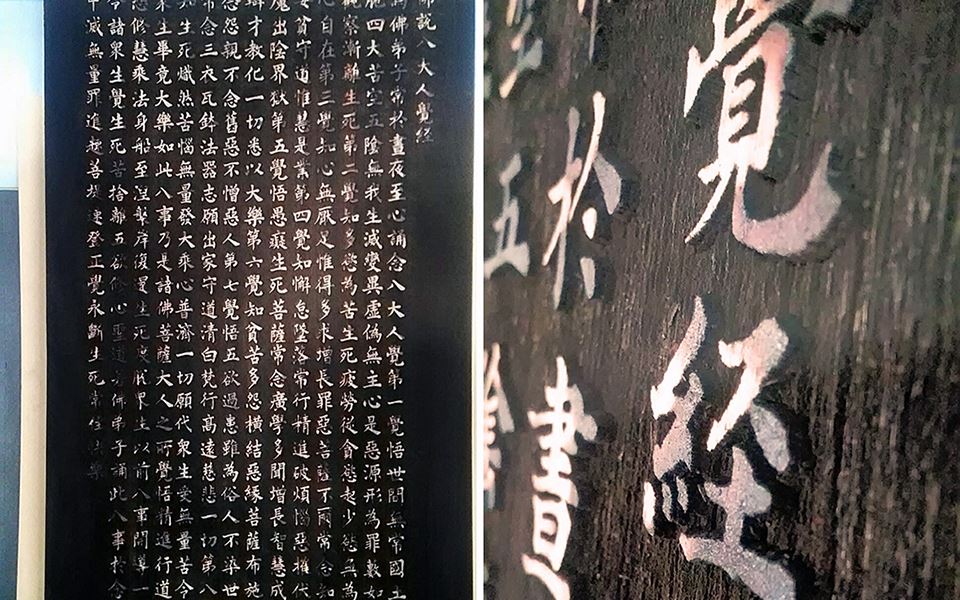 佛說八大人覺經
為佛弟子常於晝夜至心誦念八大人覺第一覺悟世間無常國土
脆四大苦空五陰無我生滅變異虛偽無主心是惡源形為罪藪如
觀察漸離生死第二覺知多慾為苦生死疲勞從貪慾起少慾無為
心自在第三覺知心無厭足惟得多求增長罪惡菩薩不爾常念知
安貧守道惟慧是業第四覺知懈怠墜落常行精進破煩惱惡摧伏
魔出陰界獄第五覺悟愚癡生死菩薩常念廣學多聞增長智慧成
辯才教化一切悉以大樂第六覺知貧苦多怨橫結惡緣菩薩布施
念怨親不念舊惡不憎惡人第七覺悟五欲過患雖為俗人不染世
常念三衣瓦鉢法器志願出家守道清白梵行高遠慈悲一切第八
知生死熾然苦惱無量發大乘心普濟一切願代眾生受無量苦令
眾生畢竟大樂如此八事乃是諸佛菩薩大人之所覺悟精進行道
悲修慧乘法身船至涅槃岸復還生死度脫眾生以前八事開導一
令諸眾生覺生死苦捨離五欲修心聖道若佛弟子誦此八事於念
中滅無量罪進趣菩提速登正覺永斷生死常住快樂
覺經
於晝
五陰